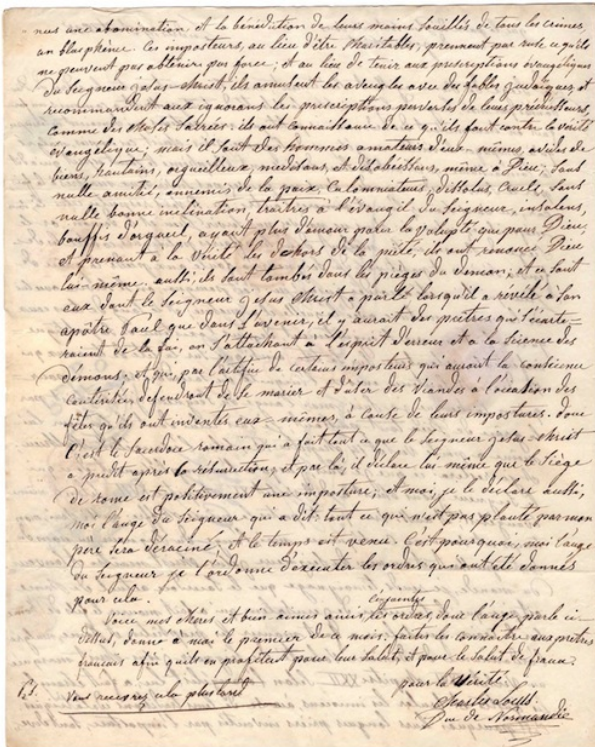 nus une abomination et la bénédiction de leurs mains souillés de tous les crimes
un blasphème. Ces imposteurs, au lieu d'être charitables, prennent par ruse ce qu'ils
ne peuvent pas obtenir par force; et au lieu de tenir aux prescriptions évangéliques
du Seigneur Jésus-Christ, ils amusent les aveugles avec des fables judaïques, et
recommandent aux ignorans les prescriptions perverses de leurs prédécesseurs,
comme des choses sacrées: ils ont connaissance de ce qu'ils font contre la vérité
évangélique; mais il sont des hommes amateurs d'eux-mêmes, avides de
biens, hautains, orgueilleux, medisans, et désobeissans, même à Dieu; sans
nulle amitié, ennemis de la paix, calomnateurs, dissolus, cruels, sans
nulle bonne inclination, traîtres à l'évangil du Seigneur, insolens,
bouffis d'orgueil, ayant plus d'amour pour la volupté que pour Dieu,
et prenant a la vérité les dehors de la piété, ils ont renoncé Dieu
lui-même. aussi, ils sont tombés dans les pièges du demon; et ce sont
eux dont le Seigneur Jesus Christ a parlé lorsqu'il a révélé à son
apôtre Paul que dans l'avenir, il y aurait des prêtres qui s'écarte-
raient de la foi, en s'attachant à l'esprit d'erreur et a la science des
démons; et qui, par l'artifice de certains imposteurs qui auront la conscience
cautérisée, défendront de se marier et d'user des viandes à l'occasion des
fêtes qu'ils ont inventés eux-mêmes, à cause de leurs impostures. donc
C'est le sacerdoce romain qui a fait tout ce que le Seigneur Jesus-Christ
a prédit après la résurrection, et par là, il déclare lui même que le Siège
de rome est positivement une imposture; et moi, je le déclare aussi,
moi l'ange du Seigneur qui a dit: tout ce qui n'est pas planté par mon
pere sera déraciné, et le temps est venu. C'est pourquoi, moi l'ange
du Seigneur je t'ordonne d'executer les ordres qui ont été donnés
pour cela.
Voici mes chères et bien aimés amis, les ordres, dont l'ange parle ci-
dessus, donné à moi le premier de ce mois: faites les connaître aux prêtres
français afin qu'ils en profitent pour leur salut, et pour le salut de france.
pour la vérité
Vous recevrez cela plus tard
Charles Louis
Duc de Normandie